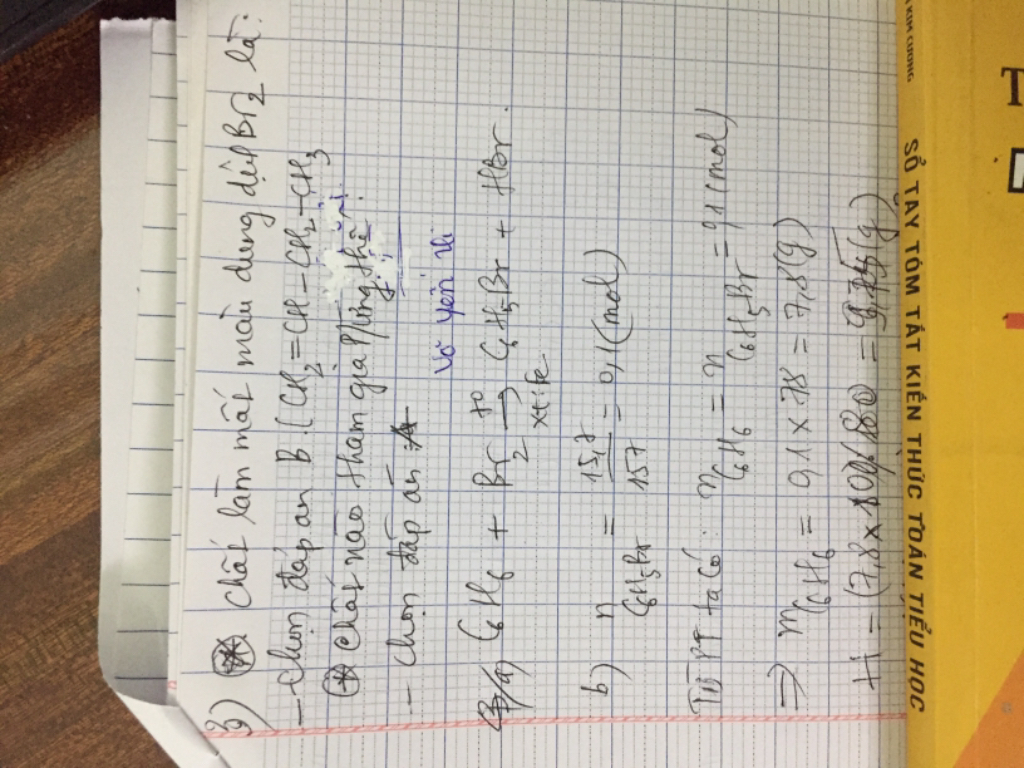 3) Chất làm mất màu dung dịch Br2 là:
- Chọn đáp án B. (CH2=CH-CH2-CH3
Chất nào tham gia p/ứng thế:
- Chọn đáp án A
Vô yên thi
a) C6H6 + Br2 t0 → xt:Fe C6H5Br + HBr.
b) n C6H5Br = 15,7 / 157 = 0,1 (mol)
Từ PT ta có: n C6H6 = n C6H5Br = 0,1 (mol)
⇒ m C6H6 = 0,1 x 78 = 7,8 (g)
H = (7,8 x 100) / 80 = 9,75 (g)
KIM CƯƠNG
SỔ TAY TÓM TẮT KIẾN THỨC TOÁN TIỂU HỌC
T